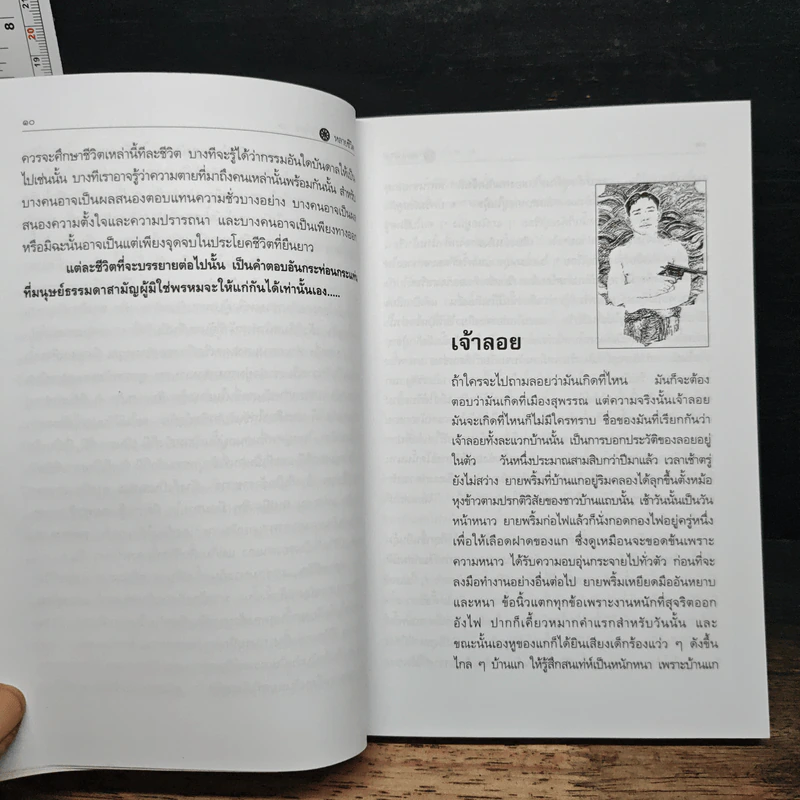 ๑๐
หลายชีวิต
ควรจะศึกษาชีวิตเหล่านี้ทีละชีวิต บางทีจะรู้ได้ว่ากรรมอันใดบันดาลให้เป็น
ไปเช่นนั้น บางทีเราอาจรู้ว่าความตายที่มาถึงคนเหล่านั้นพร้อมกันนั้น สำหรับ
บางคนอาจเป็นผลสนองตอบแทนความชั่วบางอย่าง บางคนอาจเป็นผล
สนองความตั้งใจและความปรารถนา และบางคนอาจเป็นเพียงทางออก
หรือมิฉะนั้นอาจเป็นแต่เพียงจุดจบในประโยคชีวิตที่ยืนยาว
แต่ละชีวิตที่จะบรรยายต่อไปนั้น เป็นคำตอบอันกระท่อนกระแท่น
ที่มนุษย์ธรรมดาสามัญผู้มิใช่พรหมจะให้แก่กันได้เท่านั้นเอง.....
เจ้าลอย
ถ้าใครจะไปถามลอยว่ามันเกิดที่ไหน มันก็จะต้อง
ตอบว่ามันเกิดที่เมืองสุพรรณ แต่ความจริงนั้นเจ้าลอย
มันจะเกิดที่ไหนก็ไม่มีใครทราบ ชื่อของมันที่เรียกกันว่า
เจ้าลอยทั้งละแวกบ้านนั้น เป็นการบอกประวัติของลอยอยู่
ในตัว วันหนึ่งประมาณสามสิบกว่าปีมาแล้ว เวลาเช้าตรู่
ยังไม่สว่าง ยายพริ้มที่บ้านแกอยู่ริมคลองได้ลุกขึ้นตั้งหม้อ
หุงข้าวตามปรกติวิสัยของชาวบ้านแถบนั้น เช้าวันนั้นเป็นวัน
หน้าหนาว ยายพริ้มก่อไฟแล้วก็นั่งกอดกองไฟอยู่ครู่หนึ่ง
เพื่อให้เลือดฝาดของแก ซึ่งดูเหมือนจะขอดขันเพราะ
ความหนาว ได้รับความอบอุ่นกระจายไปทั่วตัว ก่อนที่จะ
ลงมือทำงานอย่างอื่นต่อไป ยายพริ้มเหยียดมืออันหยาบ
และหนา ข้อนิ้วแตกทุกข้อเพราะงานหนักที่สุจริตออก
อังไฟ ปากก็เคี้ยวหมากคำแรกสำหรับวันนั้น และ
ขณะนั้นเองหูของแกก็ได้ยินเสียงเด็กร้องแว่ว ๆ ดังขึ้น
ไกล ๆ บ้านแก ให้รู้สึกสนเท่ห์เป็นหนักหนา เพราะบ้านแก
8
21
20
19